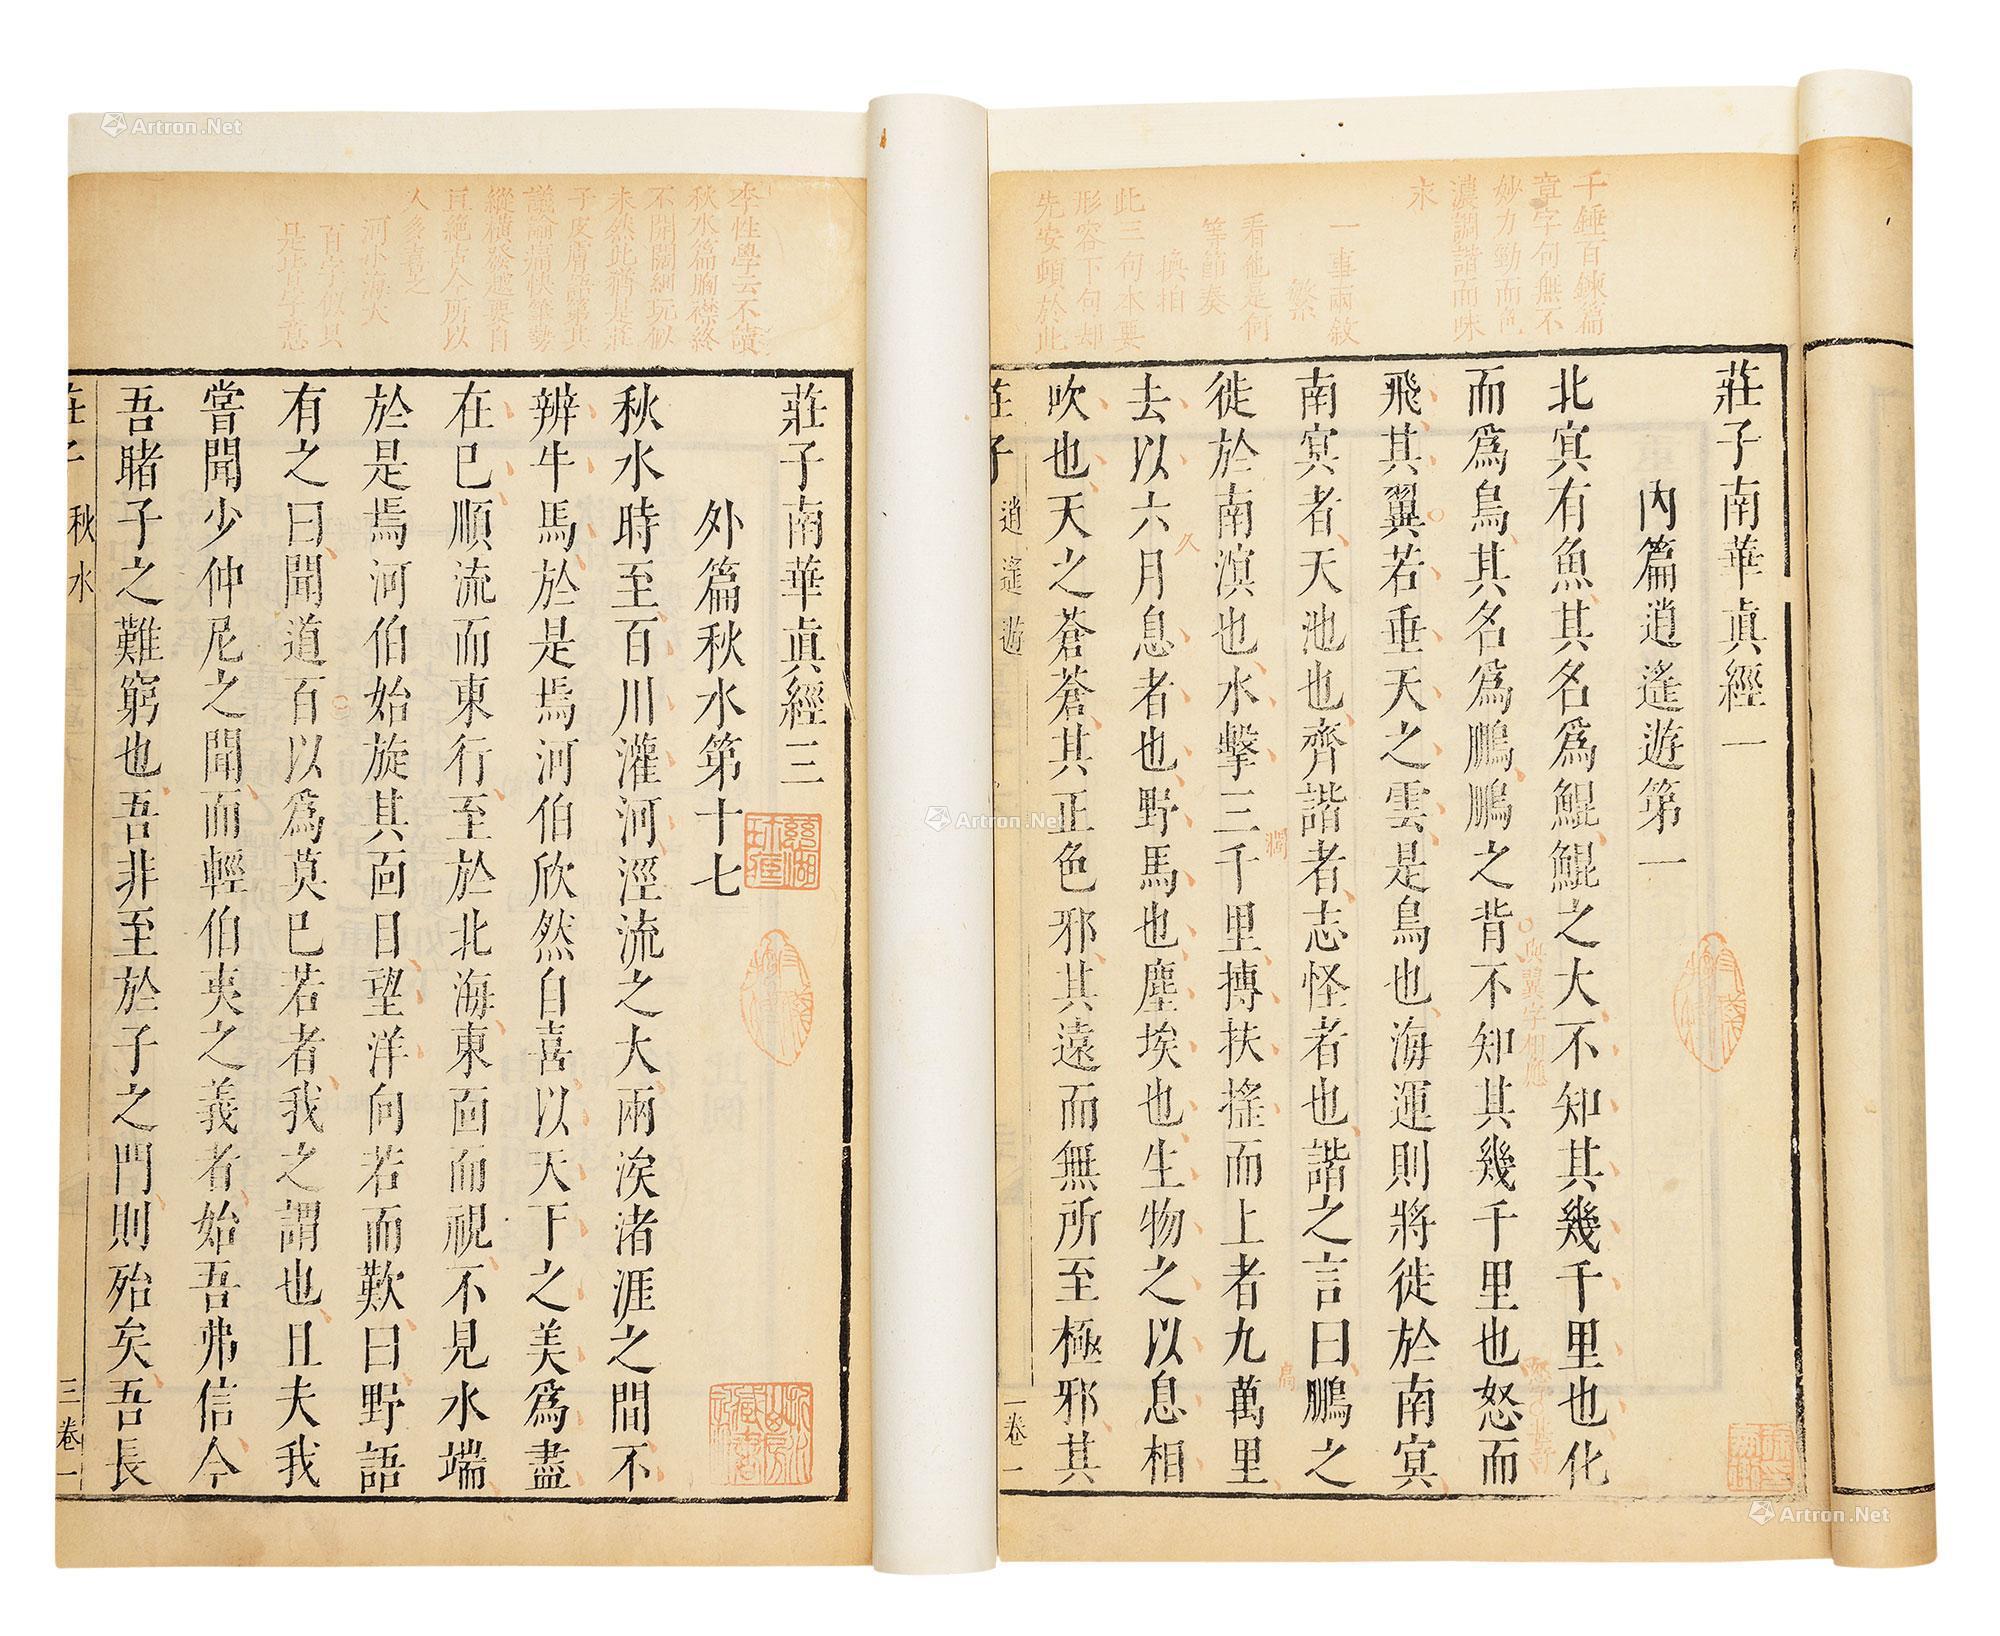 莊子南華眞經一
內篇逍遙遊第一
北㝠有魚其名爲鯤鯤之大不知其幾千里也化
而爲鳥其名爲鵬鵬之背不知其幾千里也怒而
飛其翼若垂天之雲是鳥也海運則將徙於南㝠
南㝠者天池也齊諧者志怪者也諧之言曰鵬之
徙於南溟也水擊三千里摶扶搖而上者九萬里
去以六月息者也野馬也塵埃也生物之以息相
吹也天之蒼蒼其正色邪其遠而無所至極邪其
莊子
逍遙遊
一卷
一
千錘百鍊篇
章字句無不
妙力勁而色
濃調諧而味
永
一事兩敘
看他是何
等節奏
換拍
此三句本要
形容下句却
先安頓於此
與翼字相應
久
莊子南華眞經三
外篇秋水第十七
秋水時至百川灌河涇流之大兩涘渚涯之間不
辨牛馬於是焉河伯欣然自喜以天下之美爲盡
在已順流而東行至於北海東面而視不見水端
於是焉河伯始旋其面目望洋向若而歎曰野語
有之曰聞道百以爲莫已若者我之謂也且夫我
嘗聞少仲尼之聞而輕伯夷之義者始吾弗信今
吾睹子之難窮也吾非至於子之門則殆矣吾長
莊子
秋水
三卷
一
李性學云不讀
秋水篇胸襟終
不開闊細玩似
未然此猶是莊
子皮膚語第其
議論痛快筆勢
縱橫發越要自
亘絕古今所以
人多喜之
河小海大
百字似只
是此首字意
Artron.Net
Artron.Net
Artron.Net